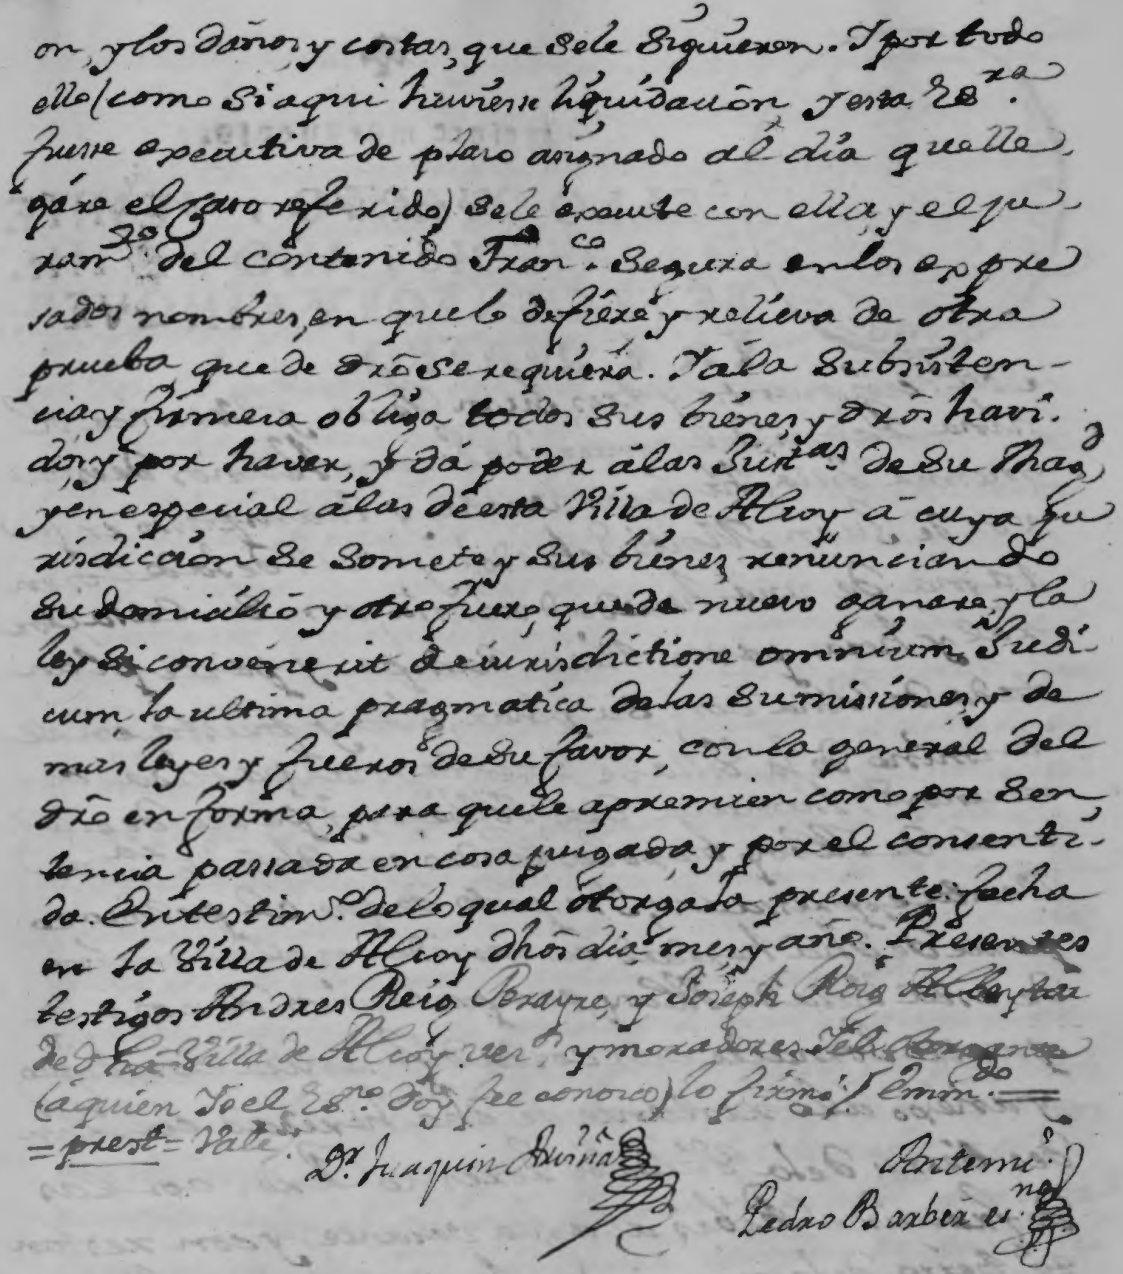 on, y los daños, y costas, que sele siguieren. Y por todo
ello (como si aqui huviesse liquidacion y esta Es.ra
fuesse executiva de plaso asignado al dia que lle,
gáre el caso referido) sele execute con ella, y el ju-
ram.to del contenido Fran.co Segura en los expre
sados nombres, en que lo defiere y relieva de otra
prueba que de dro se requiera. Y á la subsisten-
cia y firmesa obliga todos sus bienes, y dros havi.
dos, y por haver, y dá poder á las Just.as de su Mag.d,
y en especial á las de esta Villa de Alcoy á cuya ju
risdiccion se somete y sus bienes, renunciando
su domicilio y otro fuero, que de nuevo ganare, y la
ley si convenerit de iurisdictione omnium Judi-
cum la ultima pragmatica de las sumissiones, y de
mas leyes y fueros de su favor, con la general del
dro en forma, para que le apremien como por sen,
tencia passada en cosa jusgada, y por el consenti-
da. En testim.o de lo qual otorga la presente: fecha
en la Villa de Alcoy dhos dia mes y año. Presentes
testigos Andres Reig Perayre, y Joseph Roig Albeytar
de dha Villa de Alcoy vec.s y moradores, Y el otorgante
(á quien Yo el Es.no doy fee conosco) lo firmó: / Emm.do =
= prest = Vale.
D.r Juaquin
Antemi.
Pedro Barber es.no